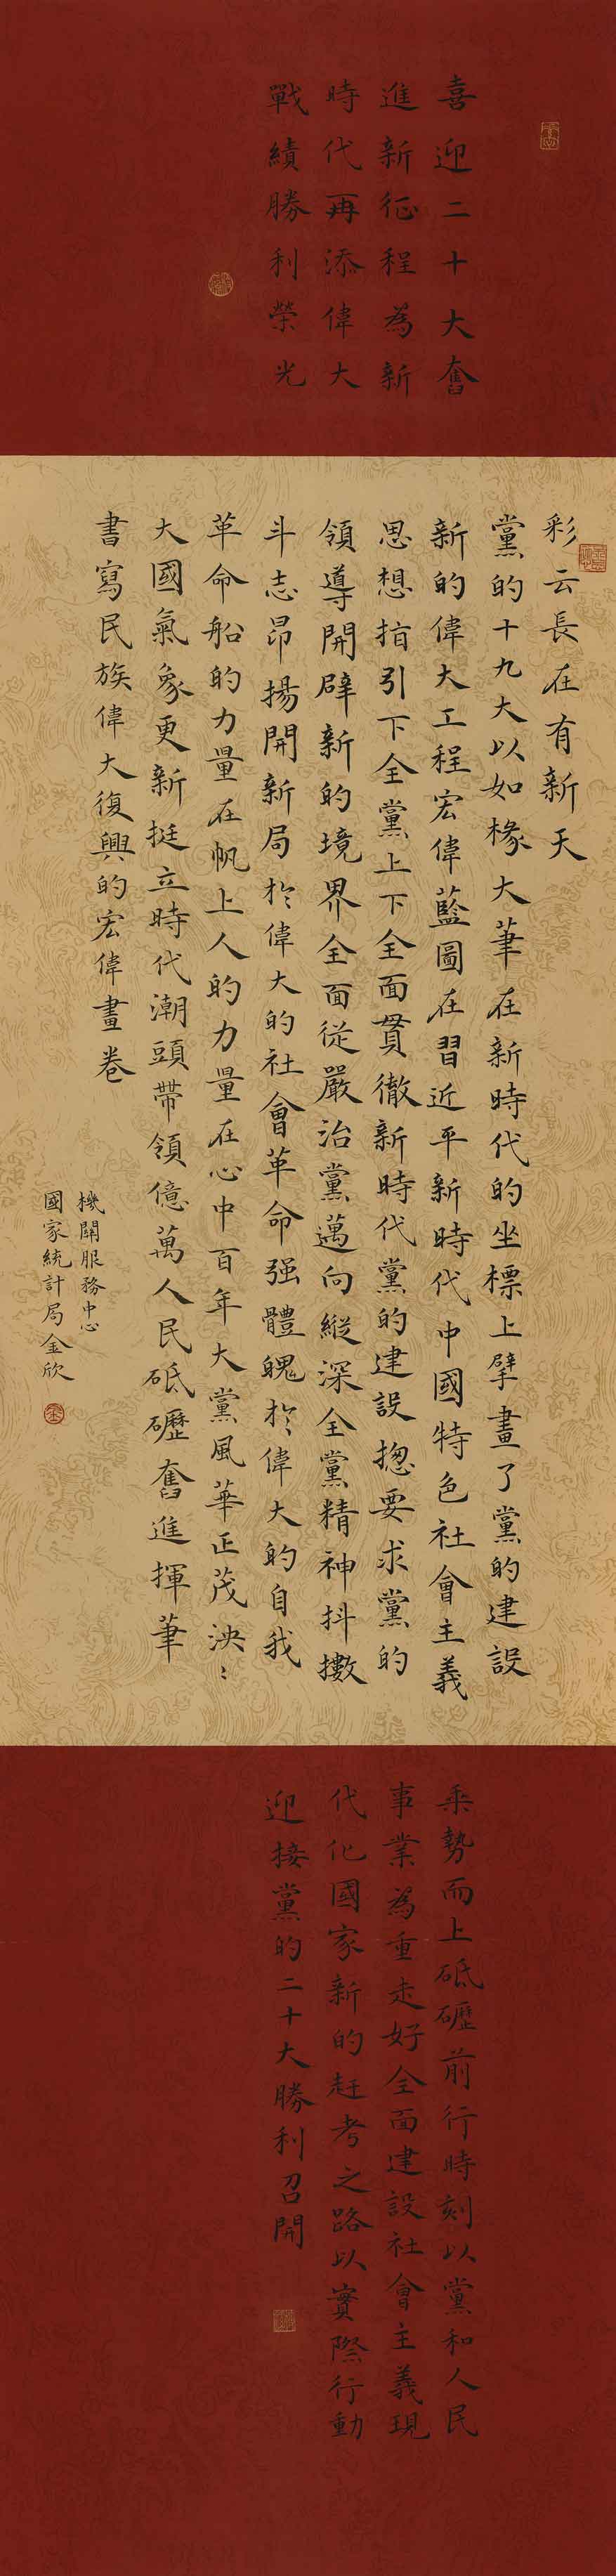 喜迎二十大奮
進新征程為新
時代再添偉大
戰績勝利榮光
彩云長在有新天
黨的十九大以如椽大筆在新時代的坐標上擘畫了黨的建設
新的偉大工程宏偉藍圖在習近平新時代中國特色社會主義
思想指引下全黨上下全面貫徹新時代黨的建設揔要求黨的
領導開辟新的境界全面從嚴治黨邁向縱深全黨精神抖擻
斗志昂揚開新局於偉大的社會革命强體魄於偉大的自我
革命船的力量在帆上人的力量在心中百年大黨風華正茂泱〻
大國氣象更新挺立時代潮頭帶領億萬人民砥礪奮進揮筆
書寫民族偉大復興的宏偉畫卷
機關服務中心
國家統計局金欣
乘勢而上砥礪前行時刻以黨和人民
事業為重走好全面建設社會主義現
代化國家新的赶考之路以實際行動
迎接黨的二十大勝利召開